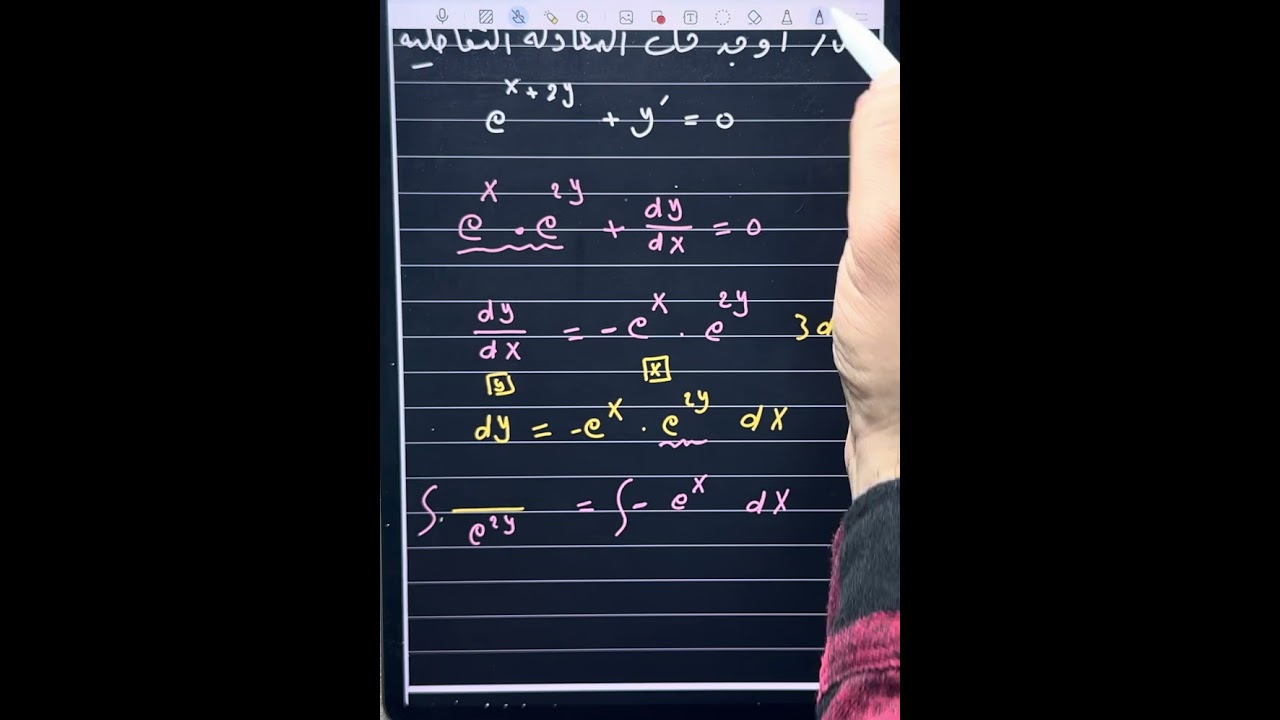 اوجد حل المعادلة التفاضلية
e^{x+2y} + y' = 0
e^x . e^{2y} + dy/dx = 0
dy/dx = -e^x . e^{2y} 3d
y x
dy = -e^x . e^{2y} dx
∫ /e^{2y} = ∫ - e^x dx